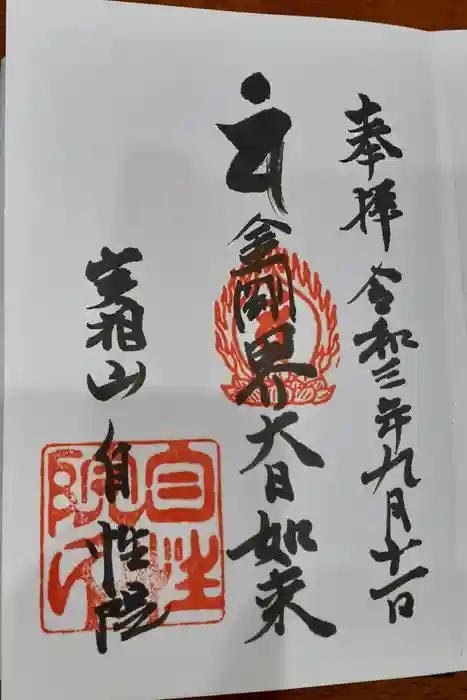 奉拝 令和三年九月十一日
वं 金剛界大日如来
実相山 自性院
自性院印